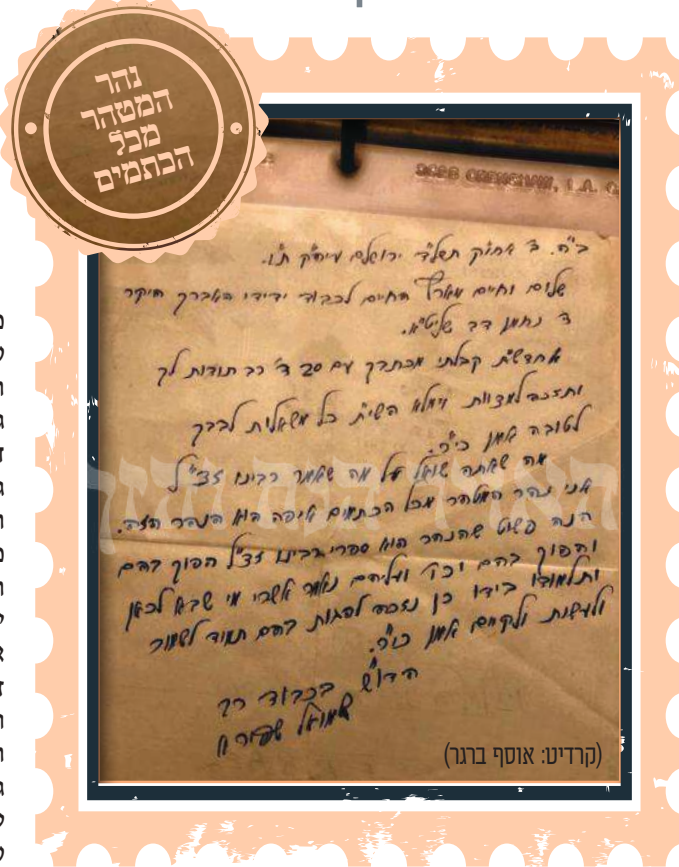 נהר
המטהר
מכל
הכתמים
3266 CRENSHAW, L.A. C
ב"ה. ב' תשל"ד ירושלם עיה"ק ת"ו.
שלום וחיים מארץ החיים לכבוד ידידי האברך היקר
ר' נחמן דב שליט"א.
אחדשה"ט קבלתי מכתבך עם 20 ד' רב תודות לך
ותזכה למצוות וימלא השי"ת כל משאלות לבבך
לטובה אמן כי"ר.
מה שאתה שואל על מה שאמר רבינו זצ"ל
אני נהר המטהר מכל הכתמים איפה הוא הנהר הזה.
הנה פשוט שהנהר הוא ספרי רבינו זצ"ל הפוך בהם
והפוך בהם וכו' ועליהם נאמר אשרי מי שבא לכאן
ותלמודו בידו כן נזכה להגות בהם תמיד לשמור
ולעשות ולקיים אמן כי"ר.
הדו"ש בכבוד רב
שמואל שפירא
(קרדיט: אוסף ברגר)